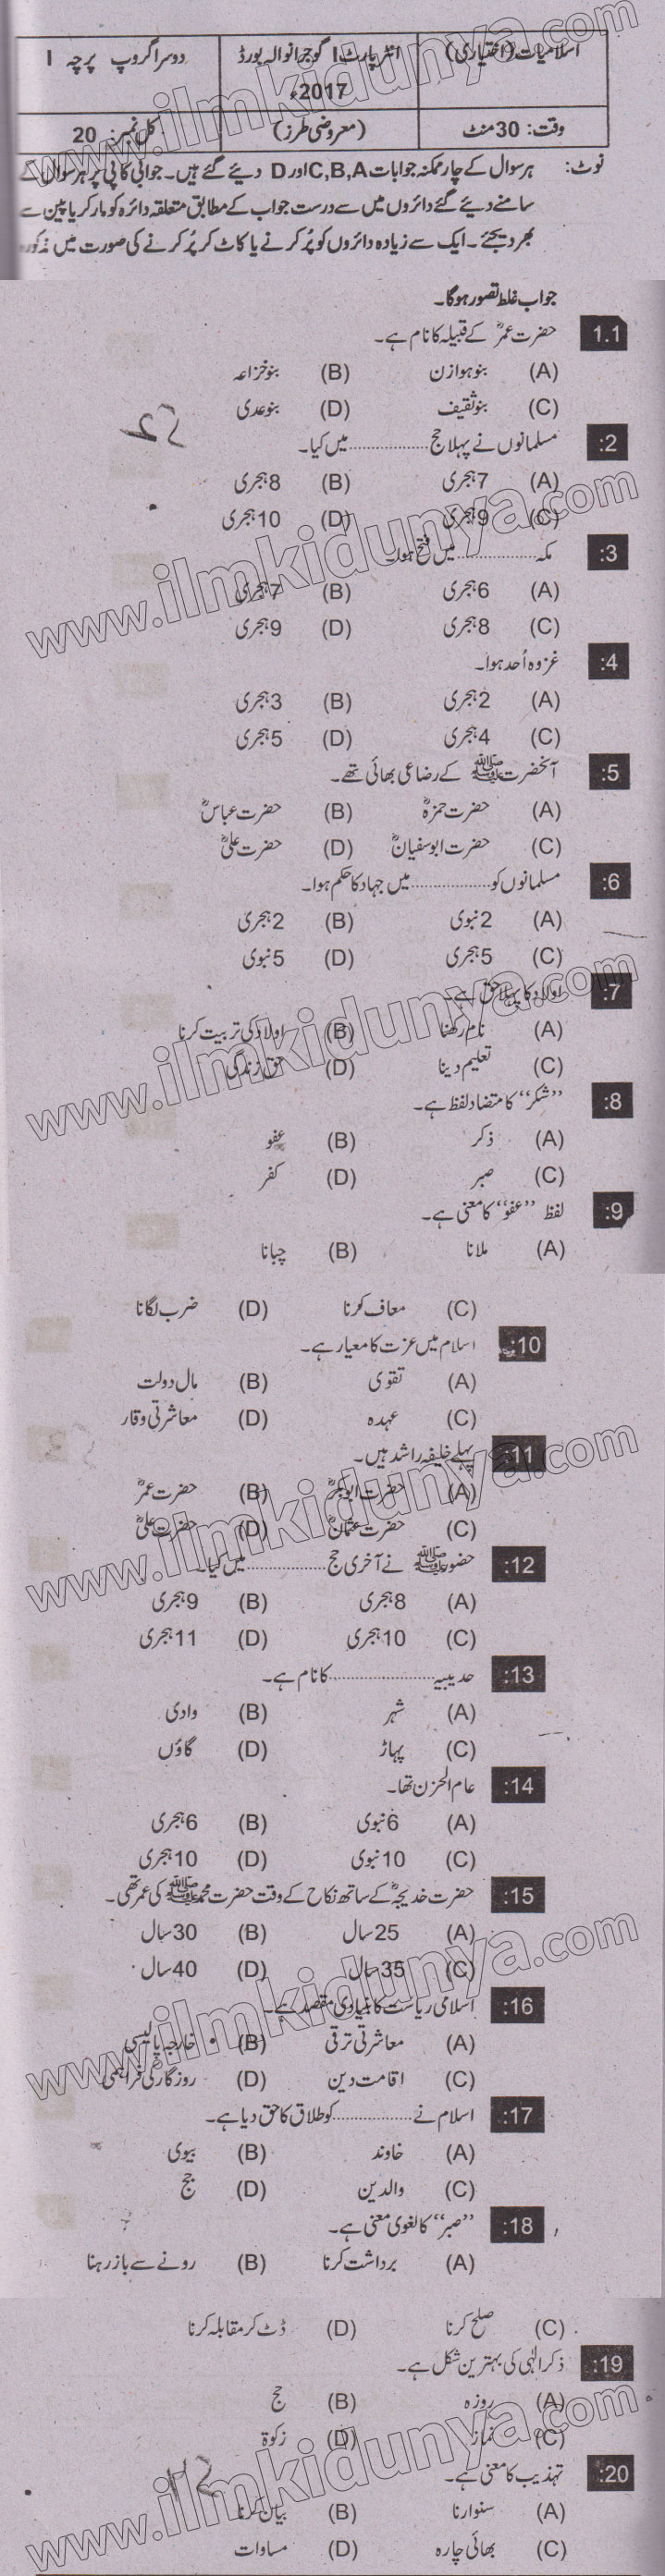 اسلامیات (اختیاری) انٹر پارٹ I گوجرانوالہ بورڈ 2017ء دوسرا گروپ پرچہ I
وقت: 30 منٹ (معروضی طرز) کل نمبر: 20
نوٹ: ہر سوال کے چار ممکنہ جوابات C,B,A اور D دیئے گئے ہیں۔ جوابی کاپی پر ہر سوال کے
سامنے دیئے گئے دائروں میں سے درست جواب کے مطابق متعلقہ دائرہ کو مارکر یا پین سے
بھر دیجئے۔ ایک سے زیادہ دائروں کو پُر کرنے یا کاٹ کر پُر کرنے کی صورت میں مذکورہ
جواب غلط تصور ہوگا۔
1.1 حضرت عمرؓ کے قبیلہ کا نام ہے۔
(A) بنو ہوازن (B) بنو خزاعہ
(C) بنو ثقیف (D) بنو عدی
2: مسلمانوں نے پہلا حج ................ میں کیا۔
(A) 7 ہجری (B) 8 ہجری
(C) 9 ہجری (D) 10 ہجری
3: مکہ ................ میں فتح ہوا۔
(A) 6 ہجری (B) 7 ہجری
(C) 8 ہجری (D) 9 ہجری
4: غزوہ اُحد ہوا۔
(A) 2 ہجری (B) 3 ہجری
(C) 4 ہجری (D) 5 ہجری
5: آنحضرت ﷺ کے رضاعی بھائی تھے۔
(A) حضرت حمزہؓ (B) حضرت عباسؓ
(C) حضرت ابوسفیانؓ (D) حضرت علیؓ
6: مسلمانوں کو ................ میں جہاد کا حکم ہوا۔
(A) 2 نبوی (B) 2 ہجری
(C) 5 ہجری (D) 5 نبوی
7: اولاد کا پہلا حق ہے۔
(A) نام رکھنا (B) اولاد کی تربیت کرنا
(C) تعلیم دینا (D) حق زندگی
8: ”شکر“ کا متضاد لفظ ہے۔
(A) ذکر (B) عفو
(C) صبر (D) کفر
9: لفظ ”عفو“ کا معنی ہے۔
(A) ملانا (B) چبانا
(C) معاف کرنا (D) ضرب لگانا
10: اسلام میں عزت کا معیار ہے۔
(A) تقویٰ (B) مال دولت
(C) عہدہ (D) معاشرتی وقار
11: پہلے خلیفہ راشد ہیں۔
(A) حضرت ابوبکرؓ (B) حضرت عمرؓ
(C) حضرت عثمانؓ (D) حضرت علیؓ
12: حضور ﷺ نے آخری حج ................ میں کیا۔
(A) 8 ہجری (B) 9 ہجری
(C) 10 ہجری (D) 11 ہجری
13: حدیبیہ ................ کا نام ہے۔
(A) شہر (B) وادی
(C) پہاڑ (D) گاؤں
14: عام الحزن تھا۔
(A) 6 نبوی (B) 6 ہجری
(C) 10 نبوی (D) 10 ہجری
15: حضرت خدیجہؓ کے ساتھ نکاح کے وقت حضرت محمد ﷺ کی عمر تھی۔
(A) 25 سال (B) 30 سال
(C) 35 سال (D) 40 سال
16: اسلامی ریاست کا بنیادی مقصد ہے۔
(A) معاشرتی ترقی (B) خارجہ پالیسی
(C) اقامت دین (D) روزگار کی فراہمی
17: اسلام نے ................ کو طلاق کا حق دیا ہے۔
(A) خاوند (B) بیوی
(C) والدین (D) جج
18: ”صبر“ کا لغوی معنی ہے۔
(A) برداشت کرنا (B) رونے سے باز رہنا
(C) صلح کرنا (D) ڈٹ کر مقابلہ کرنا
19: ذکر الٰہی کی بہترین شکل ہے۔
(A) روزہ (B) حج
(C) نماز (D) زکوٰۃ
20: تہذیب کا معنی ہے۔
(A) سنوارنا (B) بیان کرنا
(C) بھائی چارہ (D) مساوات
www.ilmkidunya.com
www.ilmkidunya.com
www.ilmkidunya.com
www.ilmkidunya.com
www.ilmkidunya.com
www.ilmkidunya.com